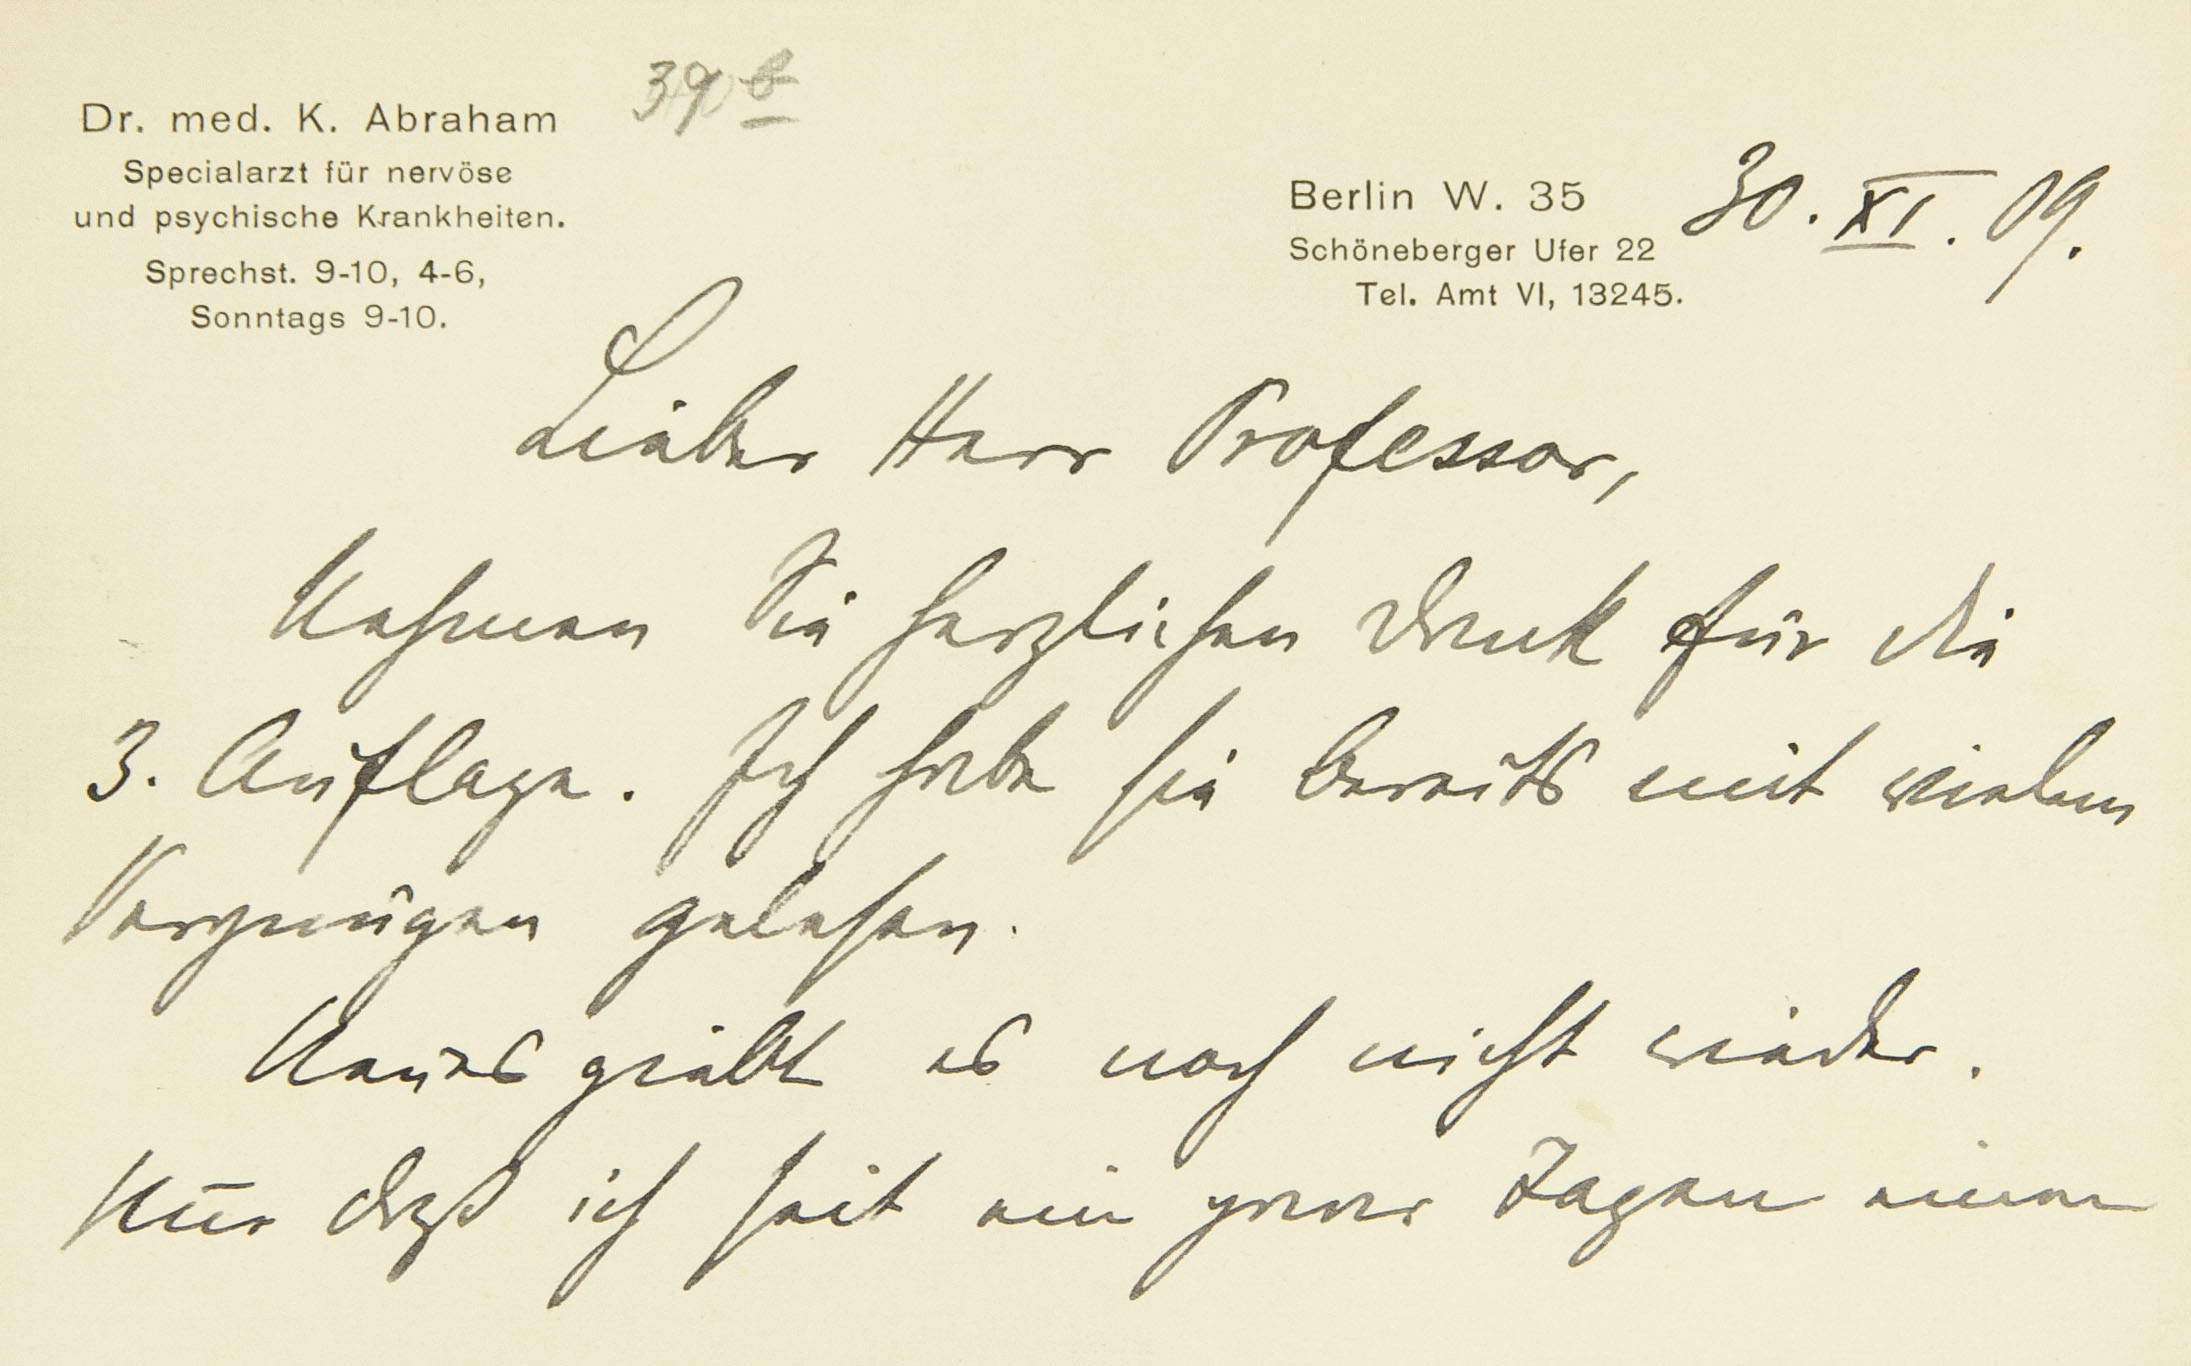 390 b
Dr. med. K. Abraham
Specialarzt für nervöse
und psychische Krankheiten.
Sprechst. 9-10, 4-6,
Sonntags 9-10.
Berlin W. 35
Schöneberger Ufer 22
Tel. Amt VI, 13245.
30. XI. 09.
Lieber Herr Professor,
Nehmen Sie herzlichen Dank für die
3. Auflage. Ich habe sie bereits mit vielem
Vergnügen gelesen.
Neues giebt es noch nicht wieder.
Nur daß ich seit ein paar Tagen einen